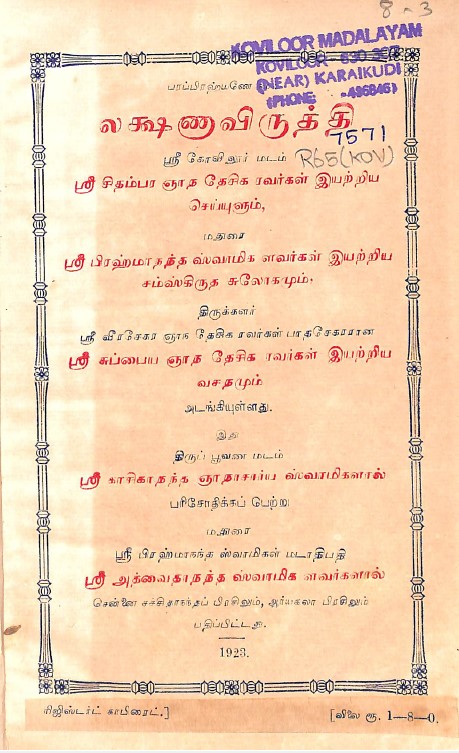 8-3
KOVILOOR MADALAYAM
KOVILOOR - 630
(NEAR) KARAIKUDI
(PHONE: -486846)
பரப்பிரஹ்மணே
லக்ஷணாவிருத்தி
7571
R65(KOV)
ஸ்ரீ கோவிலூர் மடம்
ஸ்ரீ சிதம்பர ஞாந தேசிக ரவர்கள் இயற்றிய
செய்யுளும்,
மதுரை
ஸ்ரீ பிரஹ்மாநந்த ஸ்வாமிக ளவர்கள் இயற்றிய
சம்ஸ்கிருத சுலோகமும்,
திருக்களர்
ஸ்ரீ வீரசேகர ஞாந தேசிக ரவர்கள் பாதசேகரரான
ஸ்ரீ சுப்பைய ஞாந தேசிக ரவர்கள் இயற்றிய
வசநமும்
அடங்கியுள்ளது.
இது
திருப் பூவண மடம்
ஸ்ரீ காசிகாநந்த ஞாநாசார்ய ஸ்வாமிகளால்
பரிசோதிக்கப் பெற்று
மதுரை
ஸ்ரீ பிரஹ்மாநந்த ஸ்வாமிகள் மடாதிபதி
ஸ்ரீ அத்வைதாநந்த ஸ்வாமிக ளவர்களால்
சென்னை சச்சிதாநந்தப் பிரசிலும், ஆர்யகலா பிரசிலும்
பதிப்பிட்டது.
1923.
ரிஜிஸ்டர்ட் காபிரைட்.]
[விலை ரூ. 1—8—0.